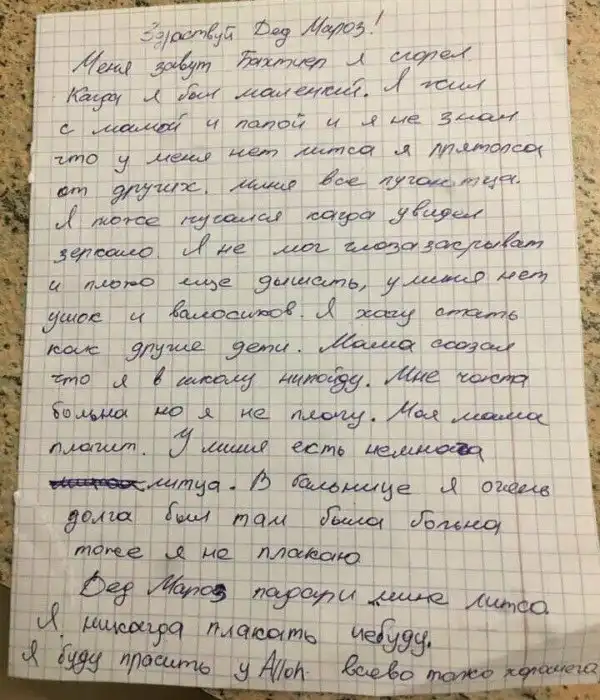 Ззраствуй Дед Мароз!
Меня завут Бахтиер я сгорел
Кагда я был маленкий. Я жил
с мамой и папой и я не знал
что у меня нет литса я прятолса
от других. миня все пугаютца.
Я тоже пугался кагда увидел
зеркало. Я не мог глоза закрыват
и плохо еще дышать, у миня нет
ушок и валосиков. Я хачу стать
как другие дети. Мама сказал
что я в школу нипойду. Мне часта
больна но я не плачу. Моя мама
плачит. У миня есть немнога
литца. В бальнице я очень
долга был там была больна
тоже я не плакаю
Дед Мароз падари мине литсо
Я никагда плакать небуду.
Я буду прасить у Alloh всево тоже харошега